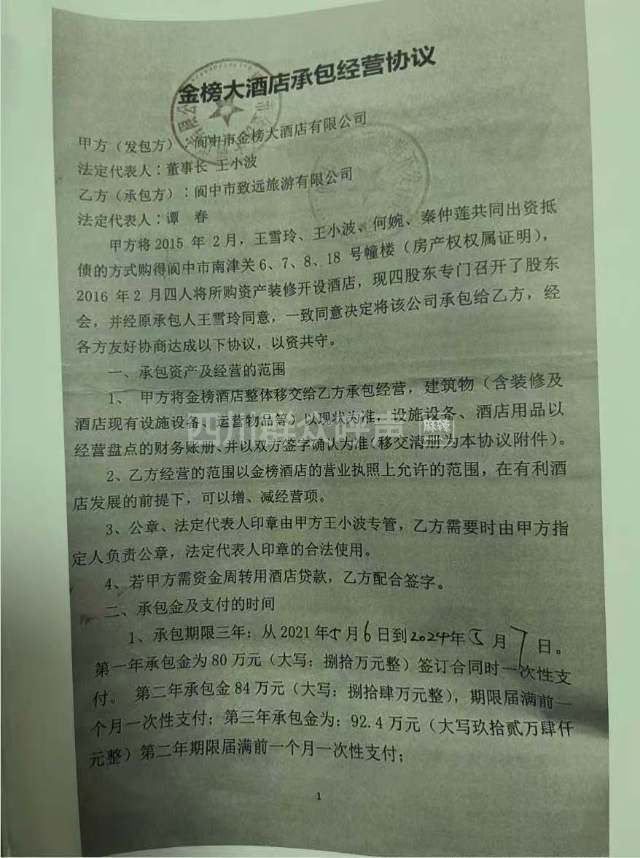 金榜大酒店承包经营协议
甲方（发包方）：阆中市金榜大酒店有限公司
法定代表人：董事长 王小波
乙方（承包方）：阆中市致远旅游有限公司
法定代表人：谭 春
甲方将 2015 年 2 月，王雪玲、王小波、何婉、秦仲莲共同出资抵
债的方式购得阆中市南津关 6、7、8、18 号幢楼（房产权权属证明），
2016 年 2 月四人将所购资产装修开设酒店，现四股东专门召开了股东
会，并经原承包人王雪玲同意，一致同意决定将该公司承包给乙方，经
各方友好协商达成以下协议，以资共守。
一、承包资产及经营的范围
1、 甲方将金榜酒店整体移交给乙方承包经营，建筑物（含装修及
酒店现有设施设备、运营物品等）以现状为准，设施设备、酒店用品以
经营盘点的财务账册、并以双方签字确认为准（移交清册为本协议附件）。
2、乙方经营的范围以金榜酒店的营业执照上允许的范围，在有利酒
店发展的前提下，可以增、减经营项。
3、公章、法定代表人印章由甲方王小波专管，乙方需要时由甲方指
定人负责公章，法定代表人印章的合法使用。
4、若甲方需资金周转用酒店贷款，乙方配合签字。
二、承包金及支付的时间
1、承包期限三年：从 2021 年 5 月 6 日到 2024 年 5 月 7 日。
第一年承包金为 80 万元（大写：捌拾万元整）签订合同时一次性支
付。 第二年承包金 84 万元（大写：捌拾肆万元整），期限届满前一
个月一次性支付；第三年承包金为：92.4 万元（大写玖拾贰万肆仟
元整）第二年期限届满前一个月一次性支付；
1
四川群众呼声
麻辣